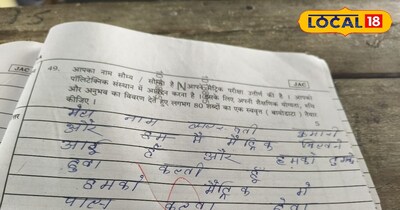 LOCAL 18
JAC
JAC
49. आपका नाम सौम्य / सौम्या है आपने मैट्रिक परीक्षा उत्तीर्ण की है। आपको
पॉलिटेक्निक संस्थान में आवेदन करना है। इसके लिए अपनी शैक्षणिक योग्यता, रुचि
और अनुभव का विवरण देते हुए लगभग 80 शब्दों का एक स्ववृत्त (बायोडाटा) तैयार
कीजिए।
मेरा नाम कुमारी
और हम मैट्रिक
आई हूँ और हमको
हुवा करती हूँ
हमको मैट्रिक में
पास करवा देवा